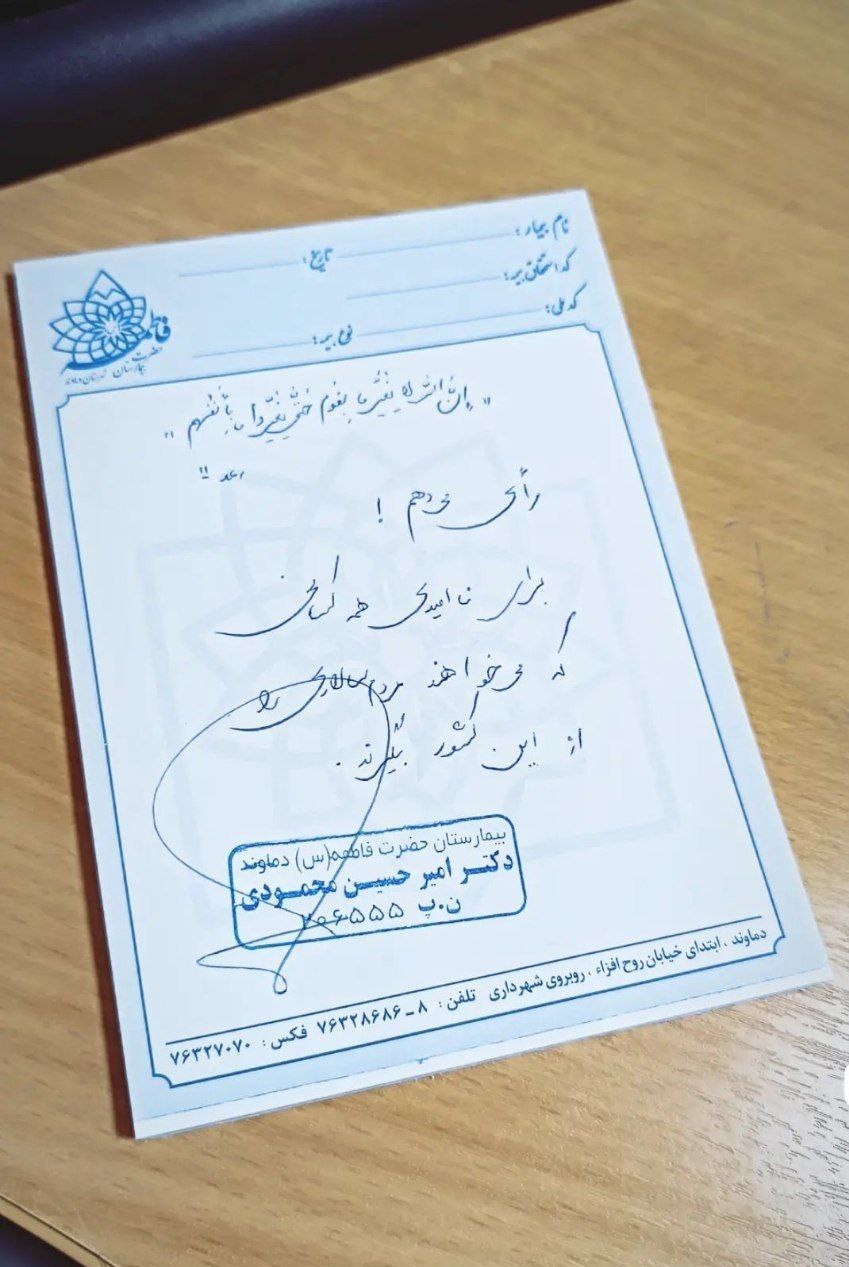 نام بیمار: تاریخ:
کد استحقاق بیمه:
کد ملی: نوع بیمه:
فاطمه
حضرت
بیمارستان شهرستان دماوند
"إنَّ اللهَ لا یُغَیِّرُ ما بِقومٍ حَتّی یُغَیِّروا ما بِأنفُسِهِم"
رعد ۱۱
رأی می‌دهم!
برای ناامیدی همه کسانی
که می‌خواهند مردم‌سالاری را
از این کشور بگیرند.
بیمارستان حضرت فاطمه(س) دماوند
دکتر امیر حسین محمودی
ن.پ ۲۰۶۵۵۵
دماوند، ابتدای خیابان روح افزاء، روبروی شهرداری تلفن: ۸ - ۷۶۳۲۸۶۸۶ فکس: ۷۶۳۲۷۰۷۰